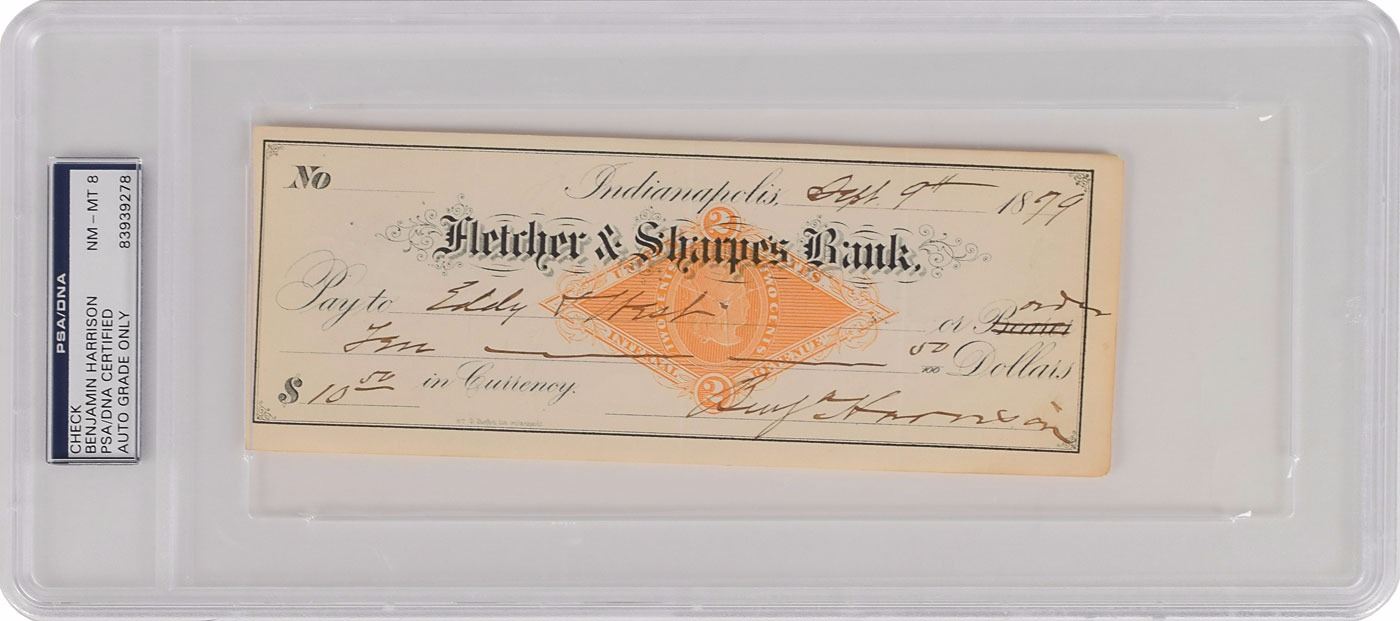 PSA/DNA
CHECK
BENJAMIN HARRISON NM-MT 8
PSA/DNA CERTIFIED
AUTO GRADE ONLY 83939278
No
Indianapolis, Sept 9th 1879
Fletcher & Sharpe's Bank,
2
UNITED STATES
TWO CENTS TWO CENTS
INTERNAL REVENUE
2
Pay to Eddy & West or Bearer order
Ten 50/100 Dollars
$ 10 50 in Currency.
Benj Harrison